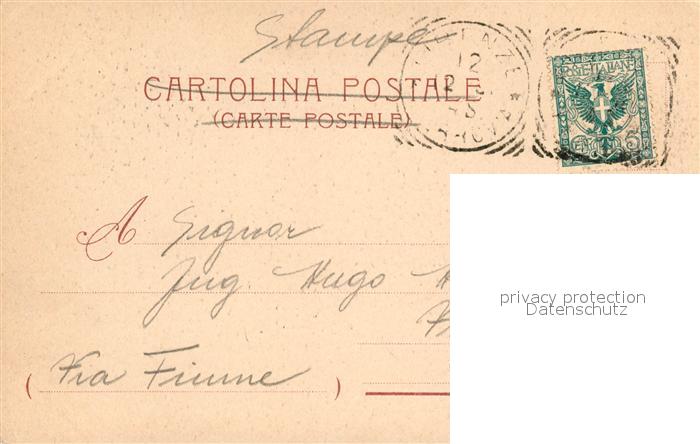 Stampe
CARTOLINA POSTALE
(CARTE POSTALE)
FIRENZE
12
POSTE ITALIANE
CENT. 5
A Signor
Jng. Hugo H
privacy protection
Datenschutz
(Via Fiume)